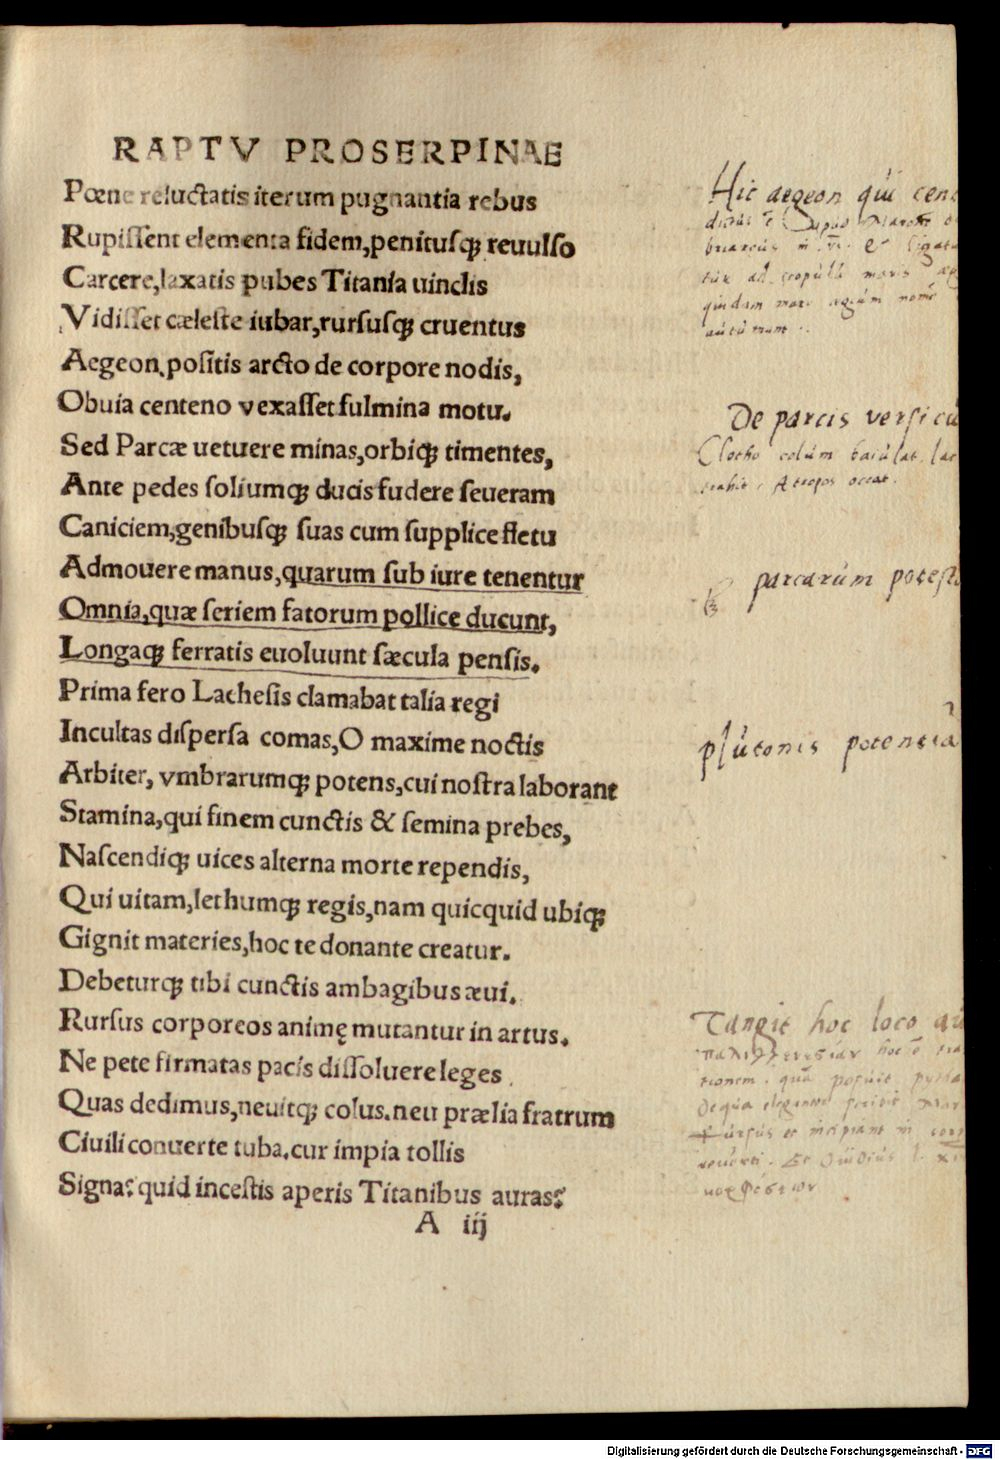 RAPTV PROSERPINAE
Pœne reluctatis iterum pugnantia rebus
Rupiſſent elementa fidem,penituſq; reuulſo
Carcere,laxatis pubes Titanía uinclis
Vidiſſet cæleſte iubar,rurſuſq; cruentus
Aegeon,poſitis arcto de corpore nodis,
Obuia centeno vexaſſet fulmina motu.
Sed Parcæ uetuere minas,orbiq; timentes,
Ante pedes ſoliumq; ducis fudere ſeueram
Caniciem,genibuſq; ſuas cum ſupplice fletu
Admouere manus,quarum ſub iure tenentur
Omnia,quæ ſeriem fatorum pollice ducunt,
Longaq; ferratis euoluunt ſæcula penſis.
Prima fero Lacheſis clamabat talia regi
Incultas diſperſa comas,O maxime noctis
Arbiter, vmbrarumq; potens,cui noſtra laborant
Stamina,qui finem cunctis & ſemina prebes,
Naſcendiq; uices alterna morte rependis,
Qui uitam,lethumq; regis,nam quicquid ubiq;
Gignit materies,hoc te donante creatur.
Debeturq; tibi cunctis ambagibus æui.
Rurſus corporeos animę mutantur in artus.
Ne pete firmatas pacis diſſoluere leges
Quas dedimus,neuitq; colus.neu prælia fratrum
Ciuili conuerte tuba.cur impia tollis
Signa? quid inceſtis aperis Titanibus auras?
A iij
Hic aegeon qui cen
De parcis versicu
Clotho colum baiulat. lac
trahit. Atropos occat.
parcarum potest
plutonis potentia
Tangit hoc loco
hoc